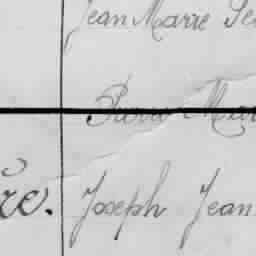 Jean Marre
Pierre
re. Joseph Jean